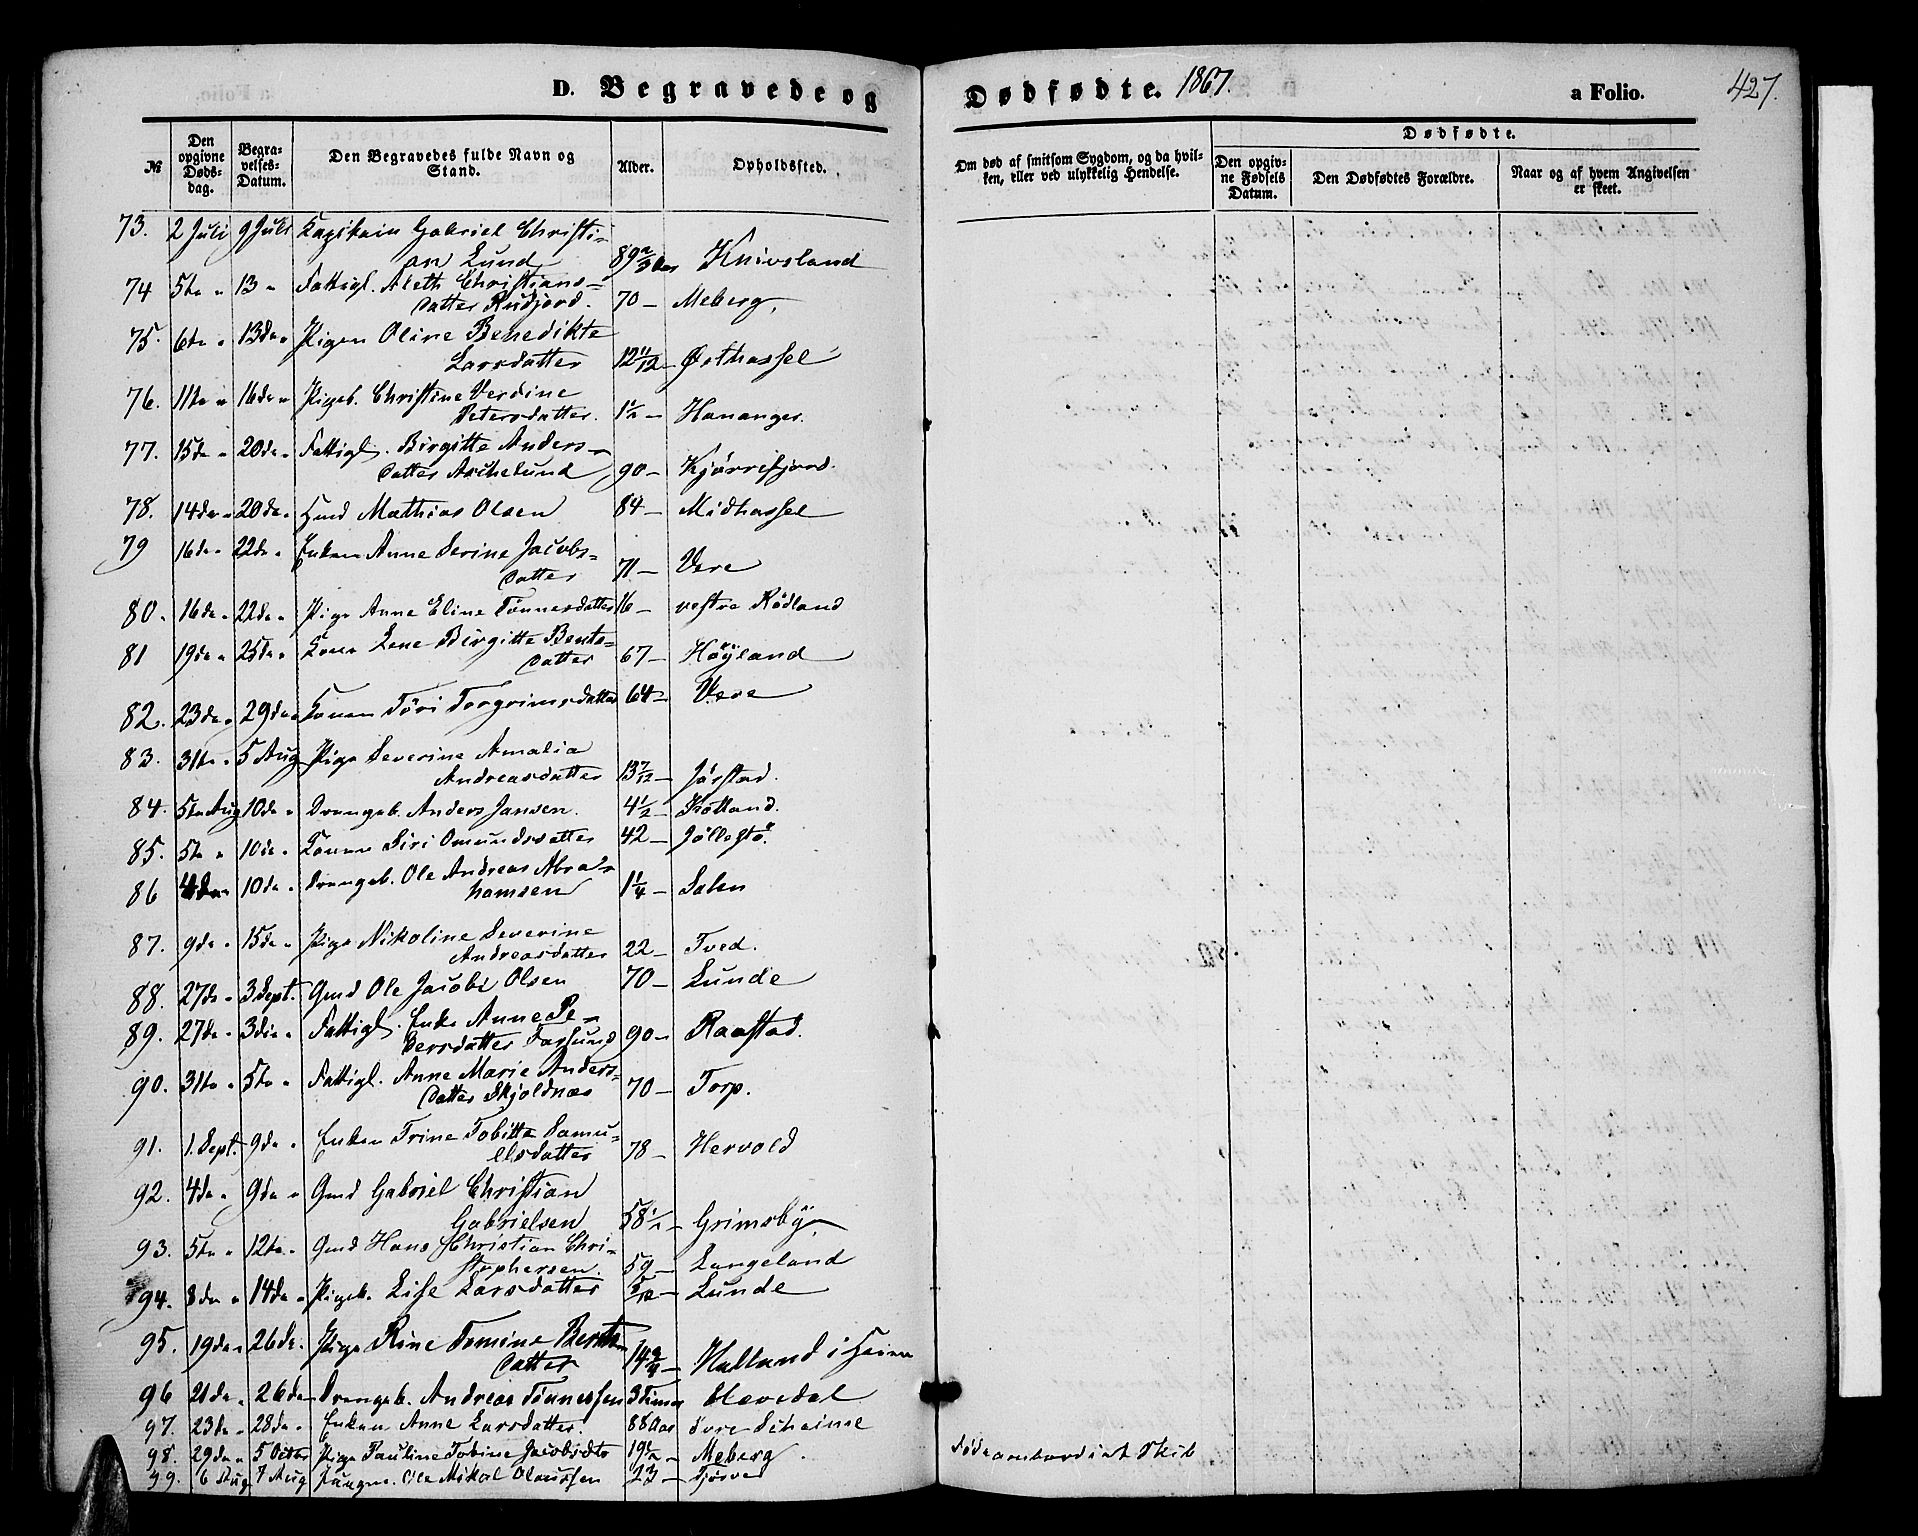 D. Begravede og Dødfødte. 1867. a Folio. 427.
№ Den opgivne Dødsdag. Begravelses-Datum. Den Begravedes fulde Navn og Stand. Alder. Opholdssted. Om død af smitsom Sygdom, og da hvilken, eller ved ulykkelig Hendelse. Dødfødte. Den opgivne Fødsels Datum. Den Dødfødtes Forældre. Naar og af hvem Angivelsen er skeet.
73. 2 Juli 9 Juli Kapitain Gabriel Christi-
an Lund Knivsland
74 5te " 13 " Fattigl. Aleth Christians-
datter Rudjord. 70 — Meberg,
75. 6te " 13de " Pigen Oline Benedikte
Larsdatter 12 11/12 — Østhassel
76. 11te " 16de " Pigeb. Christine Verdine
Petersdatter. 1½ — Hananger.
77. 15de " 20de " Fattigl. Birgitte Anders-
datter Aschelund 90 — Kjørrefjord.
78. 14de " 20de " Mathias Olsen 84 — Midhassel
79 16de " 22de " Enken Anne Serine Jacobs-
datter 71 — Vere
80. 16de " 22de " Pige Anne Eline Tønnesdatter 16 — vestre Rødland
81 19de " 25de " Kone Lene Birgitte Bents-
datter 67 — Høyland
82. 23de " 29de " Konen Töri Torgrimsdatter 64 — Vere
83. 31te " 5 Aug Pige Severine Amalia
Andreasdatter 13 7/12 — Jørstad.
84. 5te Aug 10de " Drengeb. Anders Jansen. 4½ — Kötland.
85. 5te " 10de " Konen Siri Omundsdatter 42 — Jöllestö.
86 4de " 10de " Drengeb. Ole Andreas Abra-
hamsen 1¼ —
87. 9de " 15de " Pige Nikoline Severine
Andreasdatter 22 — Tved.
88. 27de " 3 Sept. Gmd Ole Jacobs Olsen 70 — Lunde
89. 27de " 3die " Fattigl. Enke Anne Pe-
dersdatter Farsund 90 — Raastad.
90. 31te " 5te " Fattigl. Anne Marie Anders-
datter Skjoldnæs 70 — Torp.
91. 1. Sept. 9de " Enken Trine Tobitte Samu-
elsdatter 78 — Hervold
92. 4de " 9de " Gmd Gabriel Christian
Gabrielsen 58½ — Grimsby,
93. 5te " 12te " Gmd Hans Christian Chri-
stophersen. 59 — Langeland
94. 8de " 14de " Pigeb. Lise Larsdatter 5/12 — Lunde
95. 19de " 26de " Pige Rine Tomine Bents
datter 14¾ — Hulland i
96 21de " 26de Drengeb. Andreas Tönnessen 3 Timer
97. 23de " 28de " Enken Anne Larsdatter. 88 Aar övre Skeime
98. 29de " 5 Octbr Pige Pauline Tobine Jacobsdtr 19½ — Meberg.
99. 6 Aug 7 Aug Ungm. Ole Mikal Olaussen 23 — Tjörve Döde ombord i et Skib